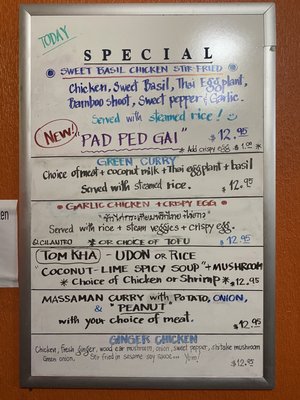 TODAY
SPECIAL
SWEET BASIL CHICKEN STIR-FRIED
Chicken, Sweet Basil, Thai Eggplant,
Bamboo shoot, Sweet pepper & Garlic.
Served with steamed rice!
NEW! "PAD PED GAI" $12.95
* Add crispy egg $1.00 *
GREEN CURRY
Choice of meat + coconut milk + Thai eggplant + basil
Served with steamed rice. $12.95
GARLIC CHICKEN + CRISPY EGG
Served with rice + steam veggies + crispy egg.
& CILANTRO * OR CHOICE OF TOFU $12.95
TOM KHA - UDON OR RICE
"COCONUT-LIME SPICY SOUP" + MUSHROOM
* Choice of Chicken or Shrimp * $12.95
MASSAMAN CURRY with POTATO, ONION,
& "PEANUT"
with your choice of meat.
$12.95
GINGER CHICKEN
Chicken, fresh ginger, wood ear mushroom, onion, sweet pepper, shitake mushroom
Green onion. Stir fried in sesame soy sauce... Yum!
$12.95